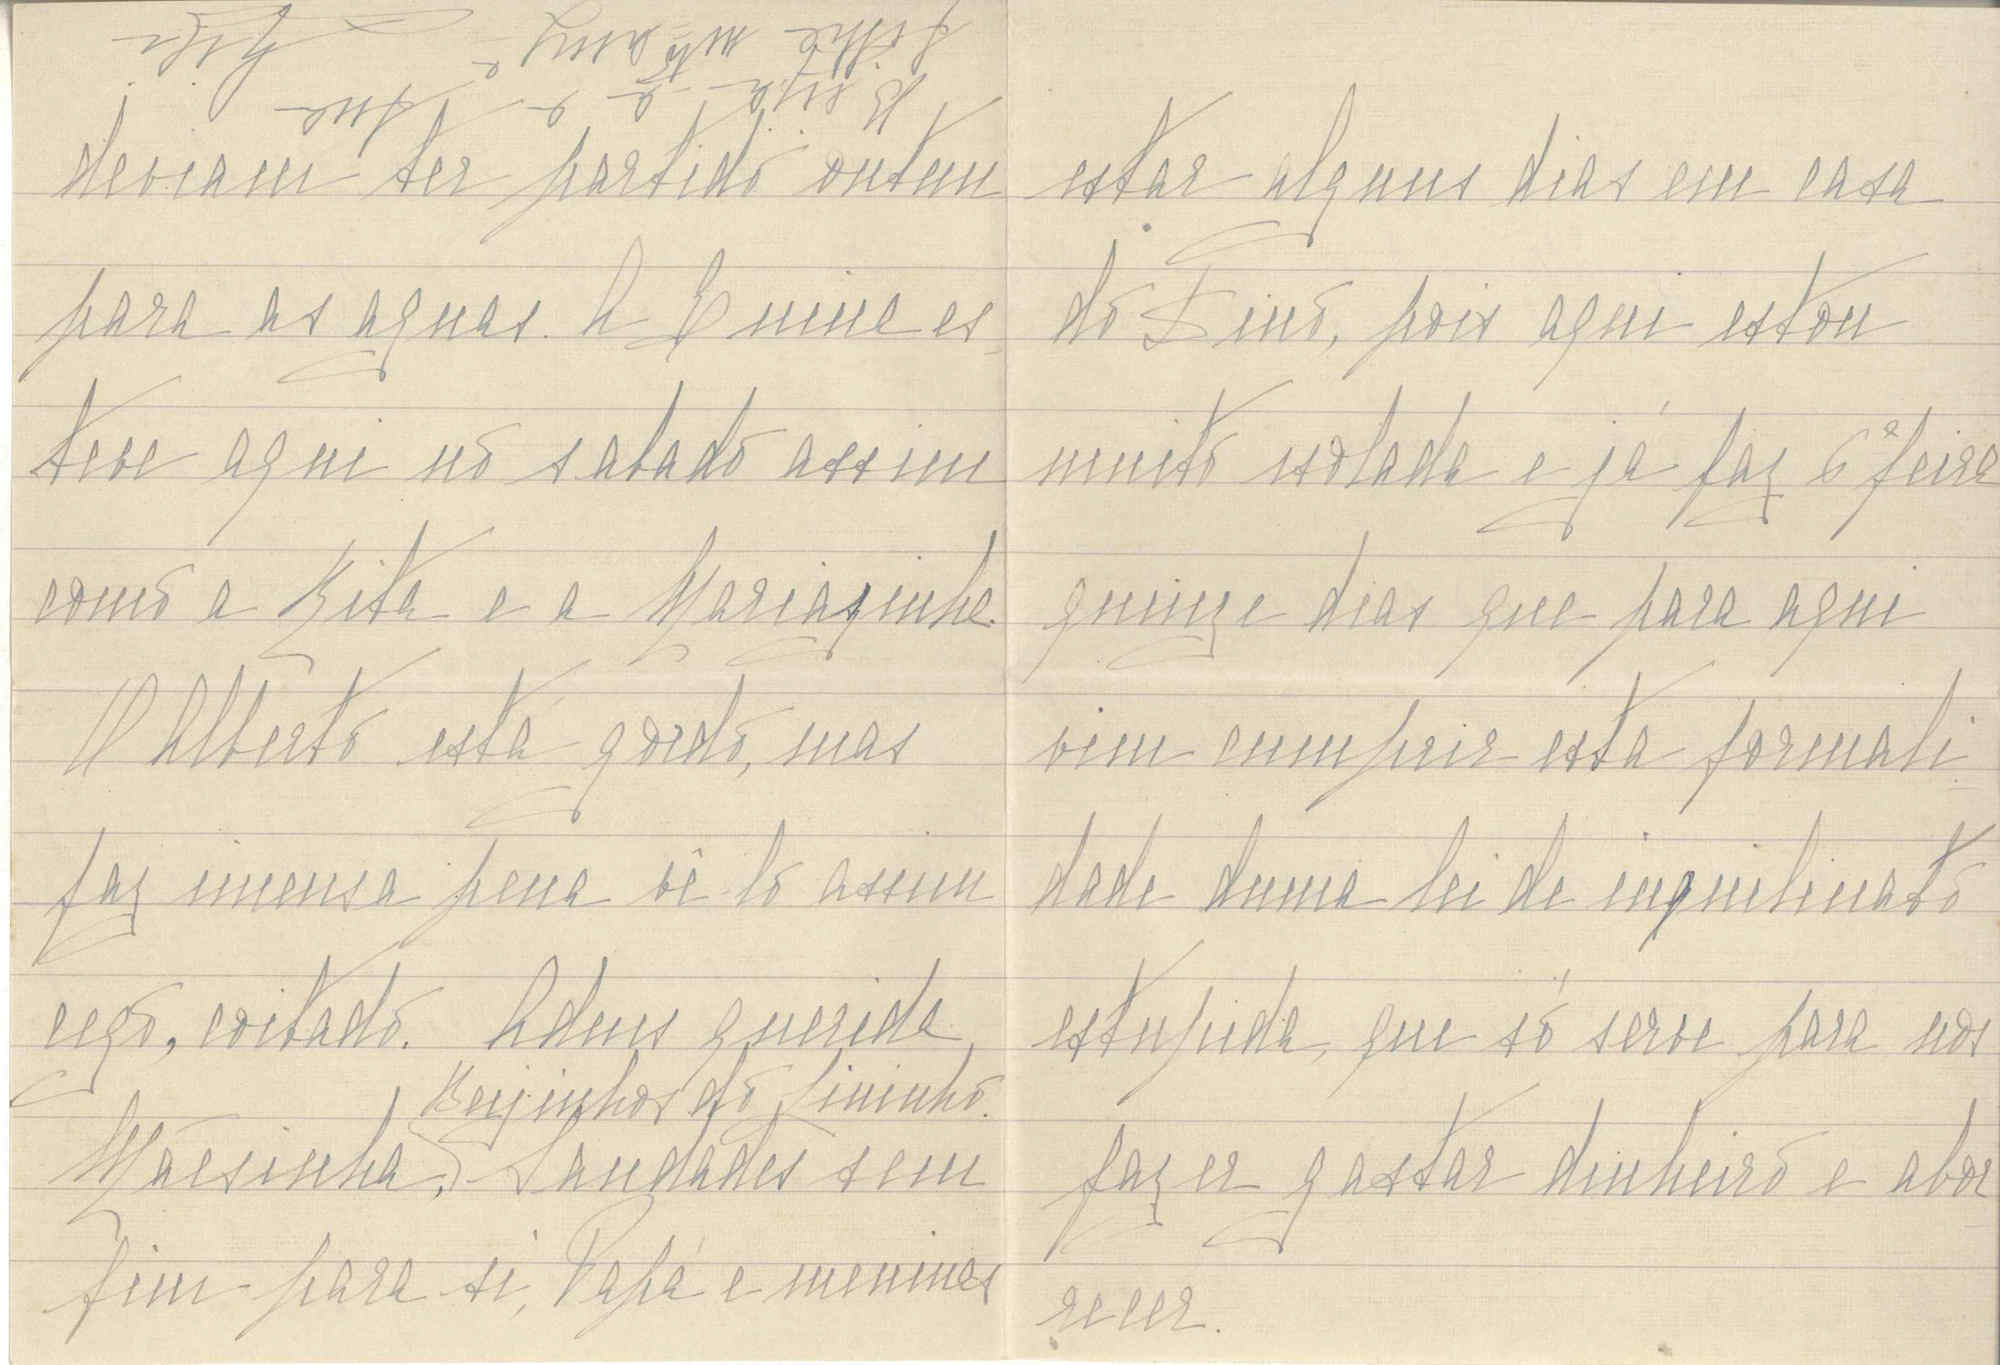 deviam ter partido ontem
para as aguas. A Eunice es-
teve aqui no sabado assim
como a Rita e a Mariazinha.
O Alberto está gordo, mas
faz imensa pena vê-lo assim
cego, coitado. Adeus querida
Beijinhos do Lininho.
Mãesinha. Saudades sem
fim para si, Papá e meninas
Beija-a a sua
filha mto amga
estar alguns dias em casa
do Dino, pois aqui estou
muito isolada e já faz 6ª feira
quinze dias que para aqui
vim cumprir esta formali-
dade duma lei de inquilinato
estupida, que só serve para nos
fazer gastar dinheiro e abor
recer.